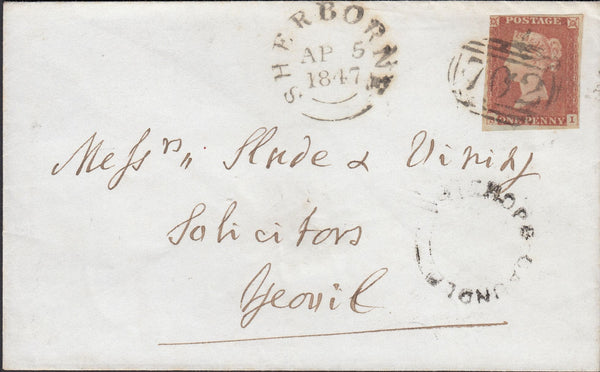 SHERBORNE
AP 5
1847
POSTAGE
702
ONE PENNY
I
Messrs Slade & Vining
Solicitors
Yeovil
BISHOPS CAUNDLE